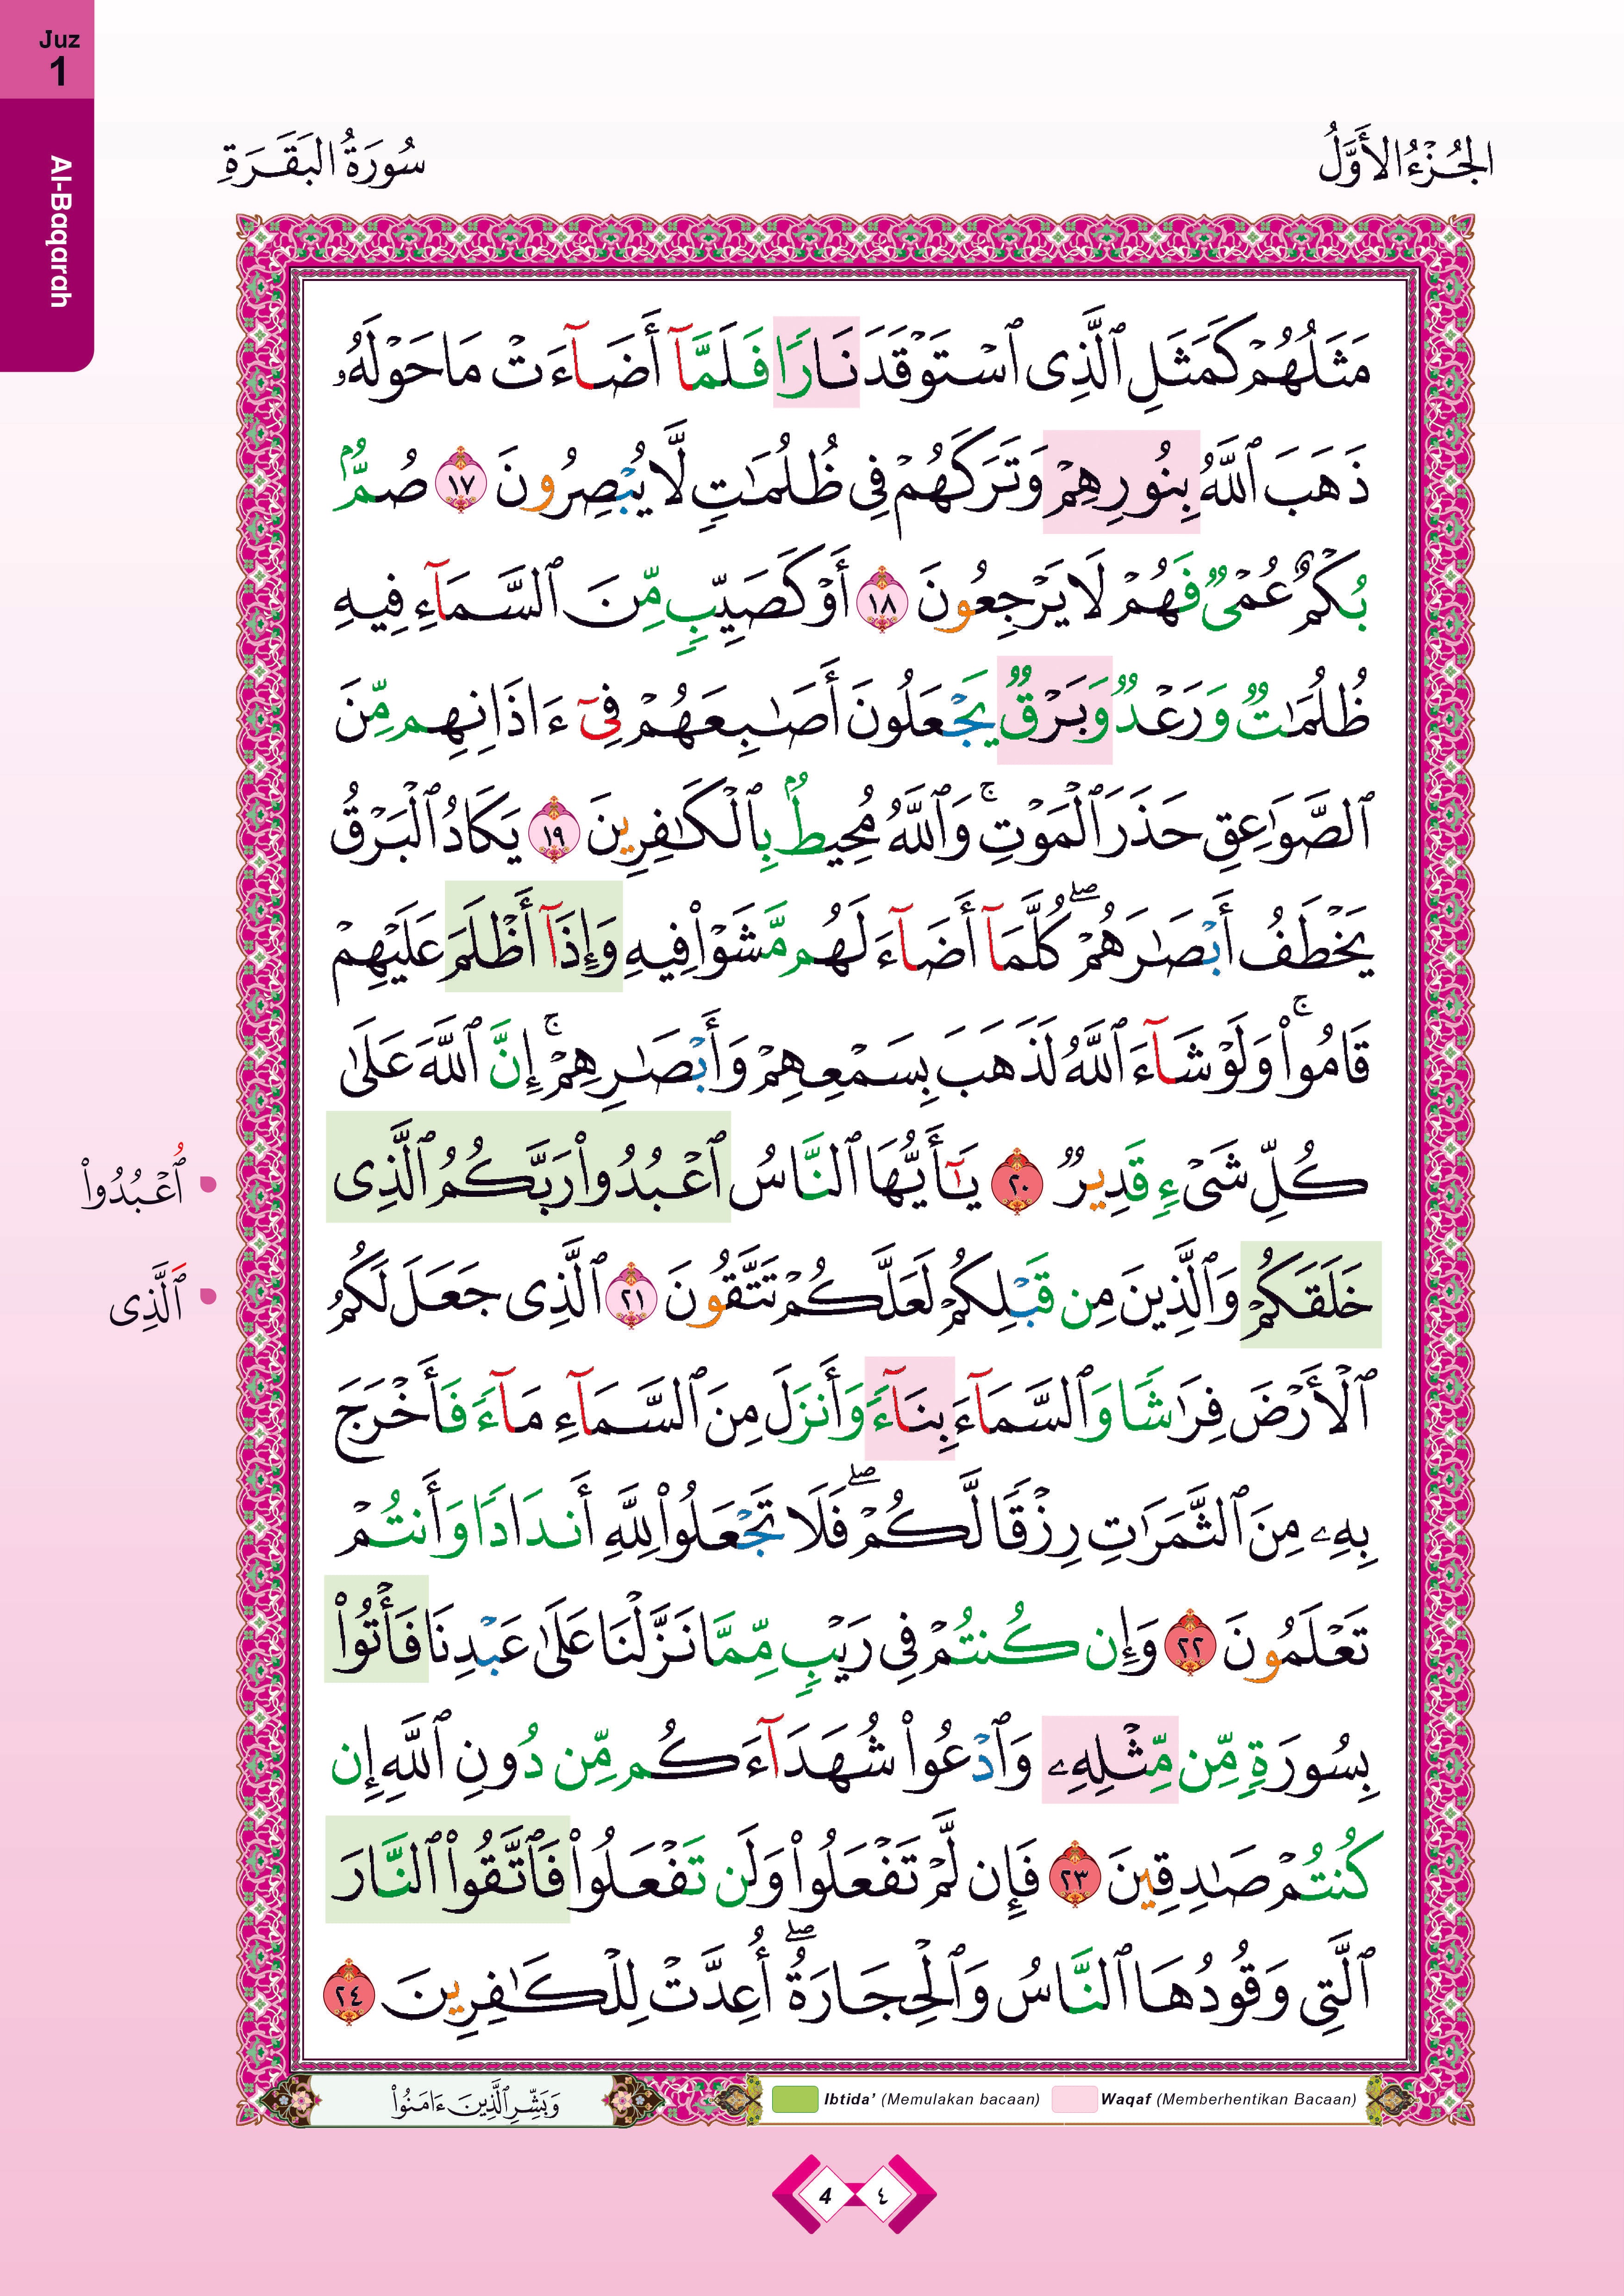 Juz
1
Al-Baqarah
سُورَةُ الْبَقَرَةِ
الْجُزْءُ الْأَوَّلُ
مَثَلُهُمْ كَمَثَلِ ٱلَّذِى ٱسْتَوْقَدَ نَارًا فَلَمَّآ أَضَآءَتْ مَا حَوْلَهُۥ
ذَهَبَ ٱللَّهُ بِنُورِهِمْ وَتَرَكَهُمْ فِى ظُلُمَـٰتٍ لَّا يُبْصِرُونَ ١٧ صُمٌّۢ
بُكْمٌ عُمْىٌ فَهُمْ لَا يَرْجِعُونَ ١٨ أَوْ كَصَيِّبٍ مِّنَ ٱلسَّمَآءِ فِيهِ
ظُلُمَـٰتٌ وَرَعْدٌ وَبَرْقٌ يَجْعَلُونَ أَصَـٰبِعَهُمْ فِىٓ ءَاذَانِهِم مِّنَ
ٱلصَّوَٰعِقِ حَذَرَ ٱلْمَوْتِ ۚ وَٱللَّهُ مُحِيطٌۢ بِٱلْكَـٰفِرِينَ ١٩ يَكَادُ ٱلْبَرْقُ
يَخْطَفُ أَبْصَـٰرَهُمْ ۖ كُلَّمَآ أَضَآءَ لَهُم مَّشَوْا۟ فِيهِ وَإِذَآ أَظْلَمَ عَلَيْهِمْ
قَامُوا۟ ۚ وَلَوْ شَآءَ ٱللَّهُ لَذَهَبَ بِسَمْعِهِمْ وَأَبْصَـٰرِهِمْ ۚ إِنَّ ٱللَّهَ عَلَىٰ
كُلِّ شَىْءٍ قَدِيرٌ ٢٠ يَـٰٓأَيُّهَا ٱلنَّاسُ ٱعْبُدُوا۟ رَبَّكُمُ ٱلَّذِى
خَلَقَكُمْ وَٱلَّذِينَ مِن قَبْلِكُمْ لَعَلَّكُمْ تَتَّقُونَ ٢١ ٱلَّذِى جَعَلَ لَكُمُ
ٱلْأَرْضَ فِرَٰشًا وَٱلسَّمَآءَ بِنَآءً وَأَنزَلَ مِنَ ٱلسَّمَآءِ مَآءً فَأَخْرَجَ
بِهِۦ مِنَ ٱلثَّمَرَٰتِ رِزْقًا لَّكُمْ ۖ فَلَا تَجْعَلُوا۟ لِلَّهِ أَندَادًا وَأَنتُمْ
تَعْلَمُونَ ٢٢ وَإِن كُنتُمْ فِى رَيْبٍ مِّمَّا نَزَّلْنَا عَلَىٰ عَبْدِنَا فَأْتُوا۟
بِسُورَةٍ مِّن مِّثْلِهِۦ وَٱدْعُوا۟ شُهَدَآءَكُم مِّن دُونِ ٱللَّهِ إِن
كُنتُمْ صَـٰدِقِينَ ٢٣ فَإِن لَّمْ تَفْعَلُوا۟ وَلَن تَفْعَلُوا۟ فَٱتَّقُوا۟ ٱلنَّارَ
ٱلَّتِى وَقُودُهَا ٱلنَّاسُ وَٱلْحِجَارَةُ ۖ أُعِدَّتْ لِلْكَـٰفِرِينَ ٢٤
اُعْبُدُوا۟
اَلَّذِى
وَبَشِّرِ ٱلَّذِينَ ءَامَنُوا۟
Ibtida' (Memulakan bacaan) Waqaf (Memberhentikan Bacaan)
4 ٤